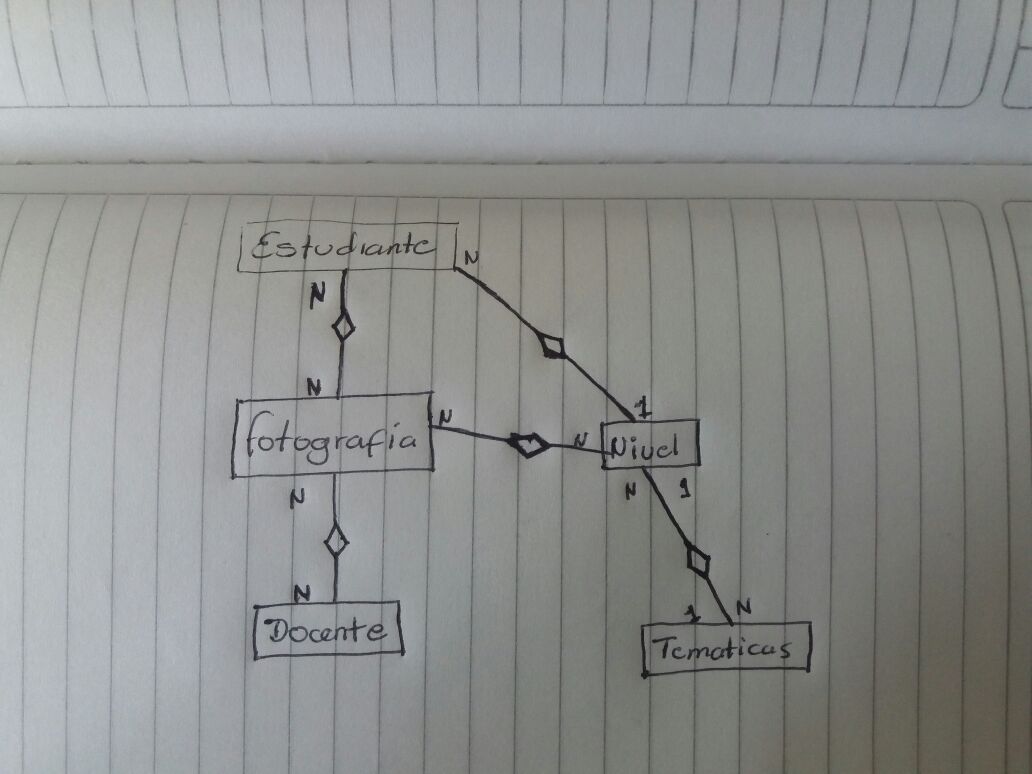 Estudiante
N
N
N
fotografia
N
N
1
Nivel
N
N
1
N
Docente
1
N
Tematicas